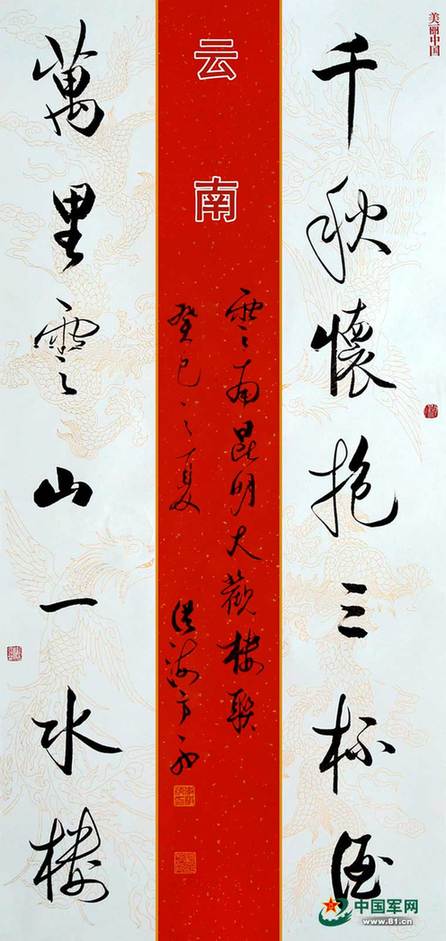 美丽中国
千秋懷抱三杯酒
云南
雲南昆明大觀樓聯
癸巳之夏
萬里雲山一水樓
中国军网
www.81.cn